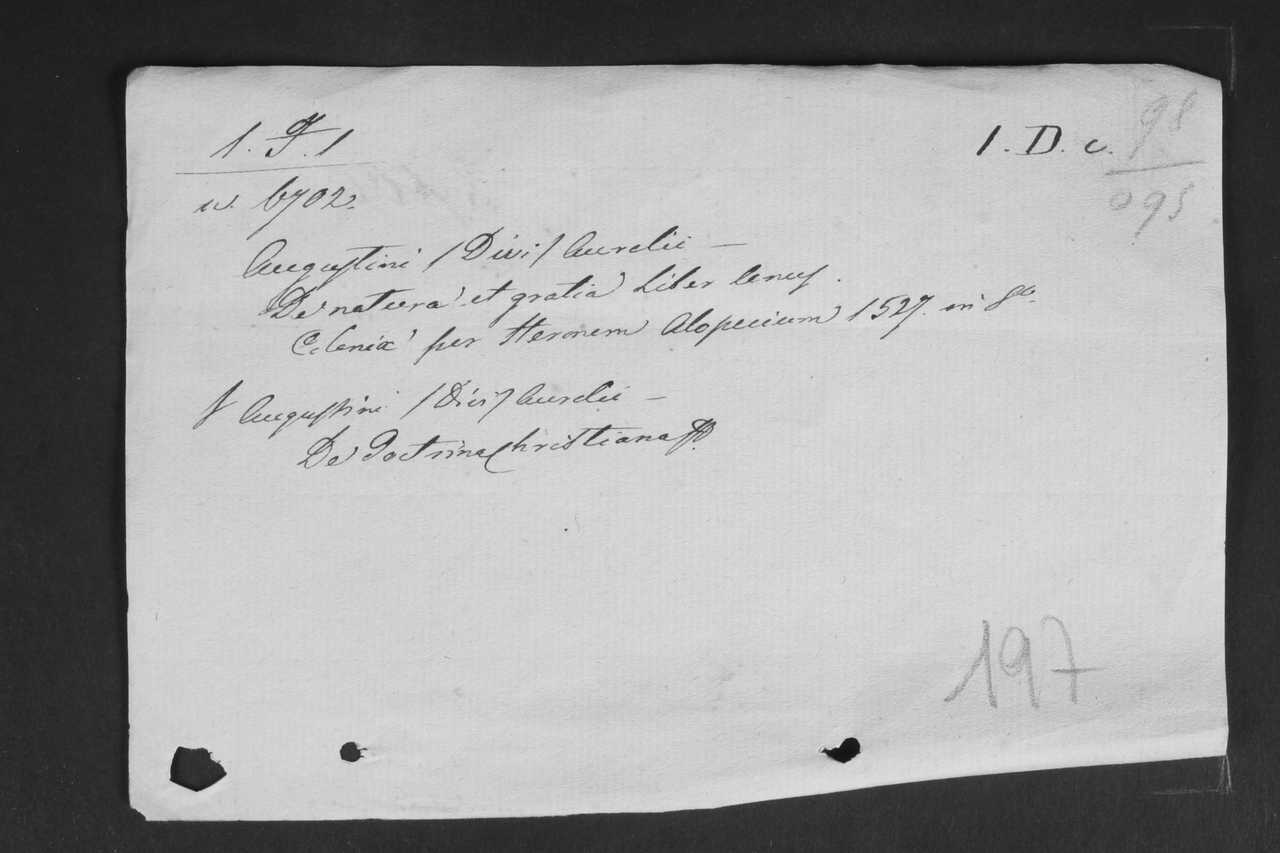 1. F. 1
1. D. c.
98
095
w. 6702.
Augustini /Divi/ Aurelii —
De natura et gratia Liber Unus.
Coloniæ per Heronem Alopecium 1527. in 8vo.
Augustini /Divi/ Aurelii —
De Doctrina Christiana
197